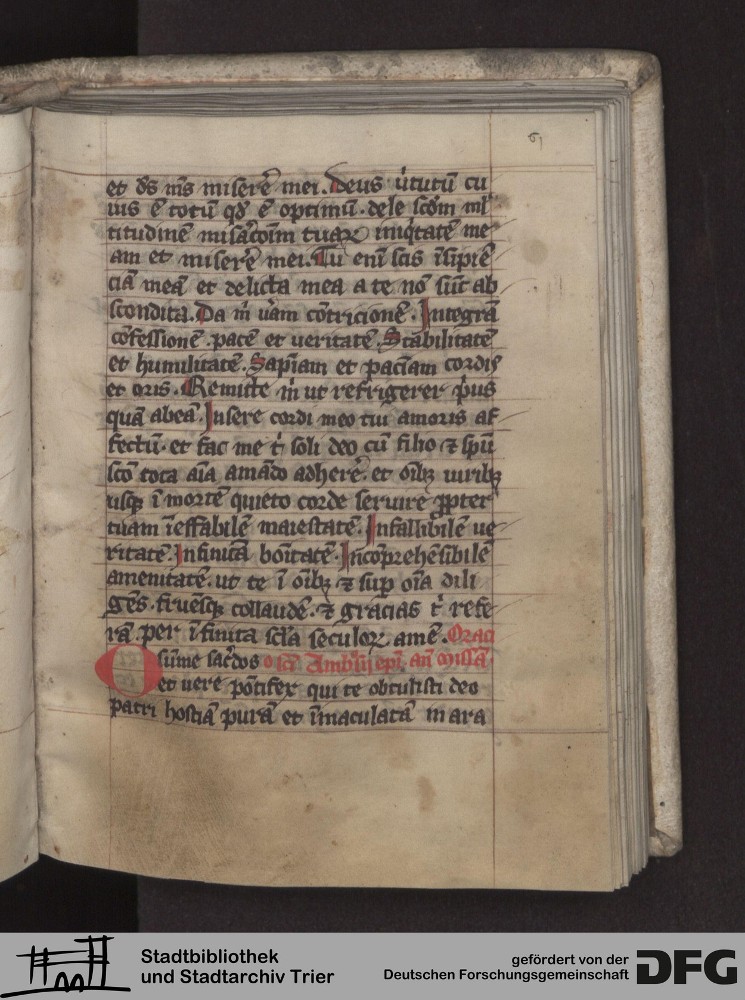 61
et ds̄ mſ̄ miſerē mei. Deus v̓tutū cu
ius ē totū qd̓ ē optimū. dele ſcd̄m ml̓
titudinē miſac̄oīm tuaꝝ iniq̓tatē me
am et miſerē mei. Tu enī ſcis īſipiē
ciā meā et delicta mea a te nō ſūt ab
ſcondita. Da m̓ v̓am cōtricionē. Integrā
cōfeſſionē. pacē et veritatē. Stabilitatē
et humilitatē. Sapīam et pacīam cordis
et oris. Remitte m̓ ut refrigerer p̓us
quā abeā. Inſere cordi meo tui amoris af
fectū. et fac me t̓ ſoli deo cū filio ⁊ ſpū
ſcō tota aīa amādo adherē. et oībꝫ uiribꝫ
uſqꝫ ī mortē quieto corde ſeruire ꝓpter
tuam īeffabilē maieſtatē. Infallibilē ve
ritatē. Infinitā boītatē. Incōprehēſibilē
amenitatē. ut te ī oībꝫ ⁊ ſuꝑ oīa dili
gēs. fruēſqꝫ collaudē. ⁊ gracias t̓ refe
rā. per īfinita ſcl̄a ſeculoꝝ amē. Oraci
O ſūme ſac̓dos o ſcī Ambͬſii epī an̄ miſſā.
et vere pōtifex qui te obtuliſti deo
patri hoſtiā purā et īmaculatā in ara
Stadtbibliothek
und Stadtarchiv Trier
gefördert von der
Deutschen Forschungsgemeinschaft
DFG